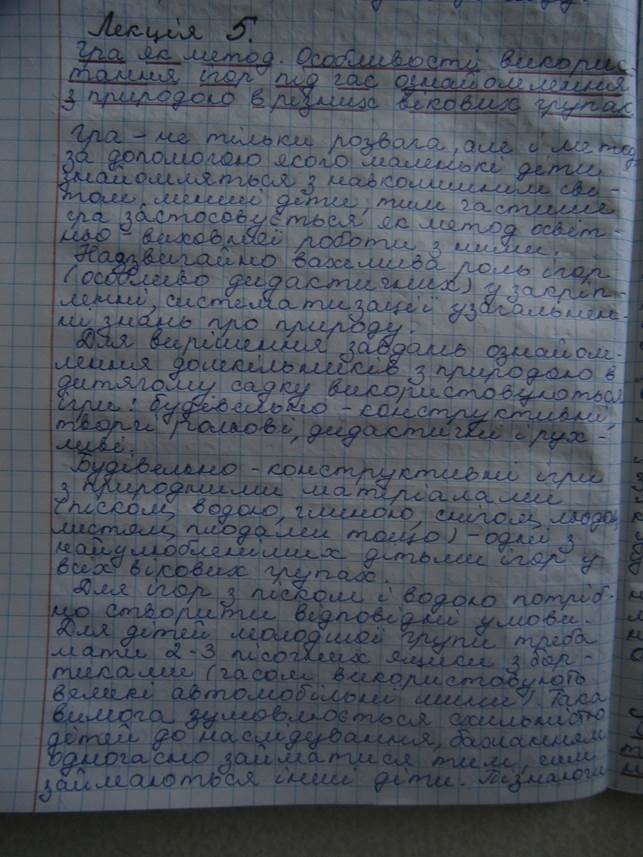 Лекція 5.
Гра як метод. Особливості викорис-
тання ігор під час ознайомлення
з природою в різних вікових групах
Гра – не тільки розвага, але і метод
за допомогою якого маленькі діти
знайомляться з навколишнім сві-
том, менші діти, тим частіше
гра застосовується як метод освіт-
ньо - виховної роботи з ними.
Надзвичайно важлива роль ігор
(особливо дидактичних) у закріп-
ленні, систематизації узагальнен-
ні знань про природу.
Для вирішення завдань ознайом-
лення дошкільників з природою в
дитячому садку використовуються
ігри: будівельно - конструктивні,
творчі рольові, дидактичні і рух-
ливі.
Будівельно - конструктивні ігри
з природними матеріалами
(піском, водою, глиною, снігом, льодом
листом, плодами тощо) - одні з
найулюбленіших дітьми ігор у
всіх вікових групах.
Для ігор з піском і водою потріб-
но створити відповідні умови.
Для дітей молодшої групи треба
мати 2-3 пісочних ящики з бор-
тиками (часом використовують
великі автомобільні шини). Така
вимога зумовлюється схильністю
дітей до наслідування, бажанням
одночасно займатися тим, чим
займаються інші діти. Пізнаючи